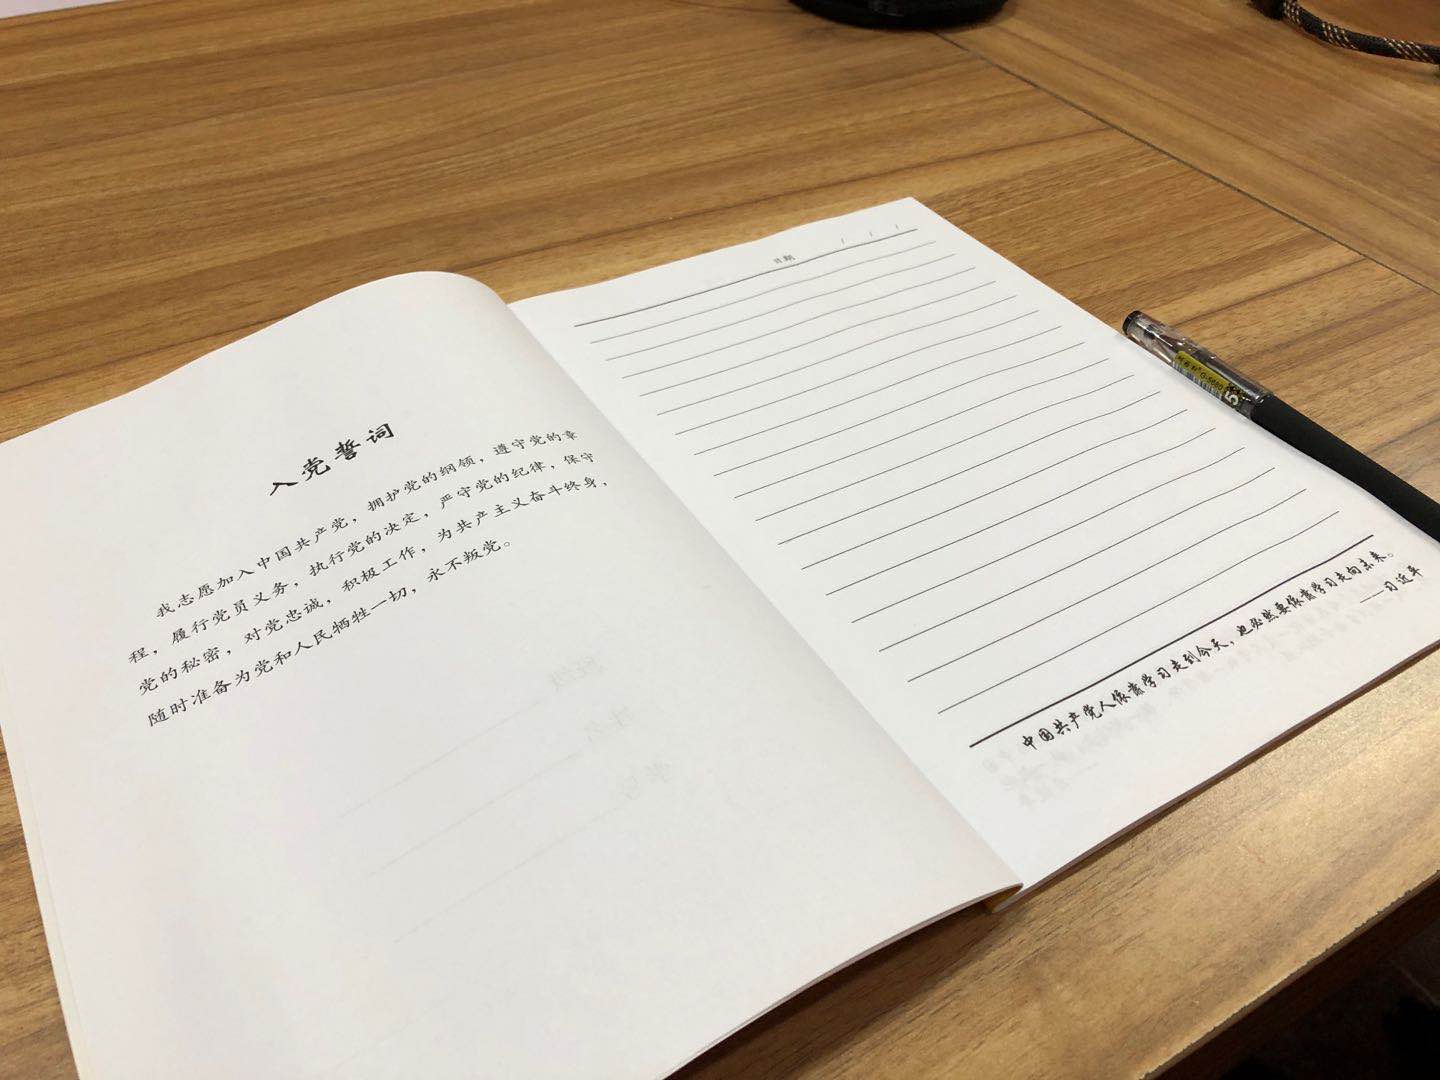 入党誓词
我志愿加入中国共产党，拥护党的纲领，遵守党的章
程，履行党员义务，执行党的决定，严守党的纪律，保守
党的秘密，对党忠诚，积极工作，为共产主义奋斗终身，
随时准备为党和人民牺牲一切，永不叛党。
日期 / / /
中国共产党人依靠学习走到今天，也必然要依靠学习走向未来。
——习近平
5